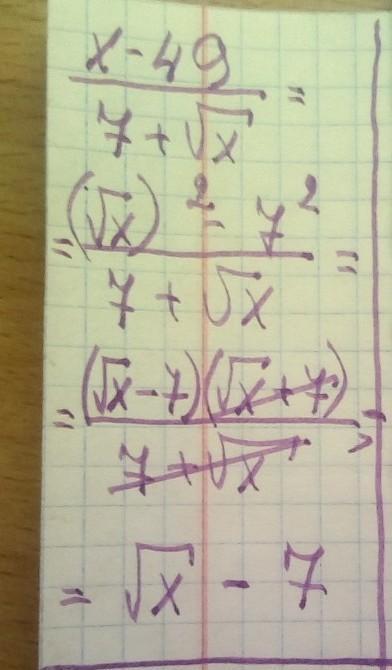 x - 49
7 + √x =
= (√x)² - 7²
7 + √x =
= (√x - 7)(√x + 7) =
7 + √x
= √x - 7